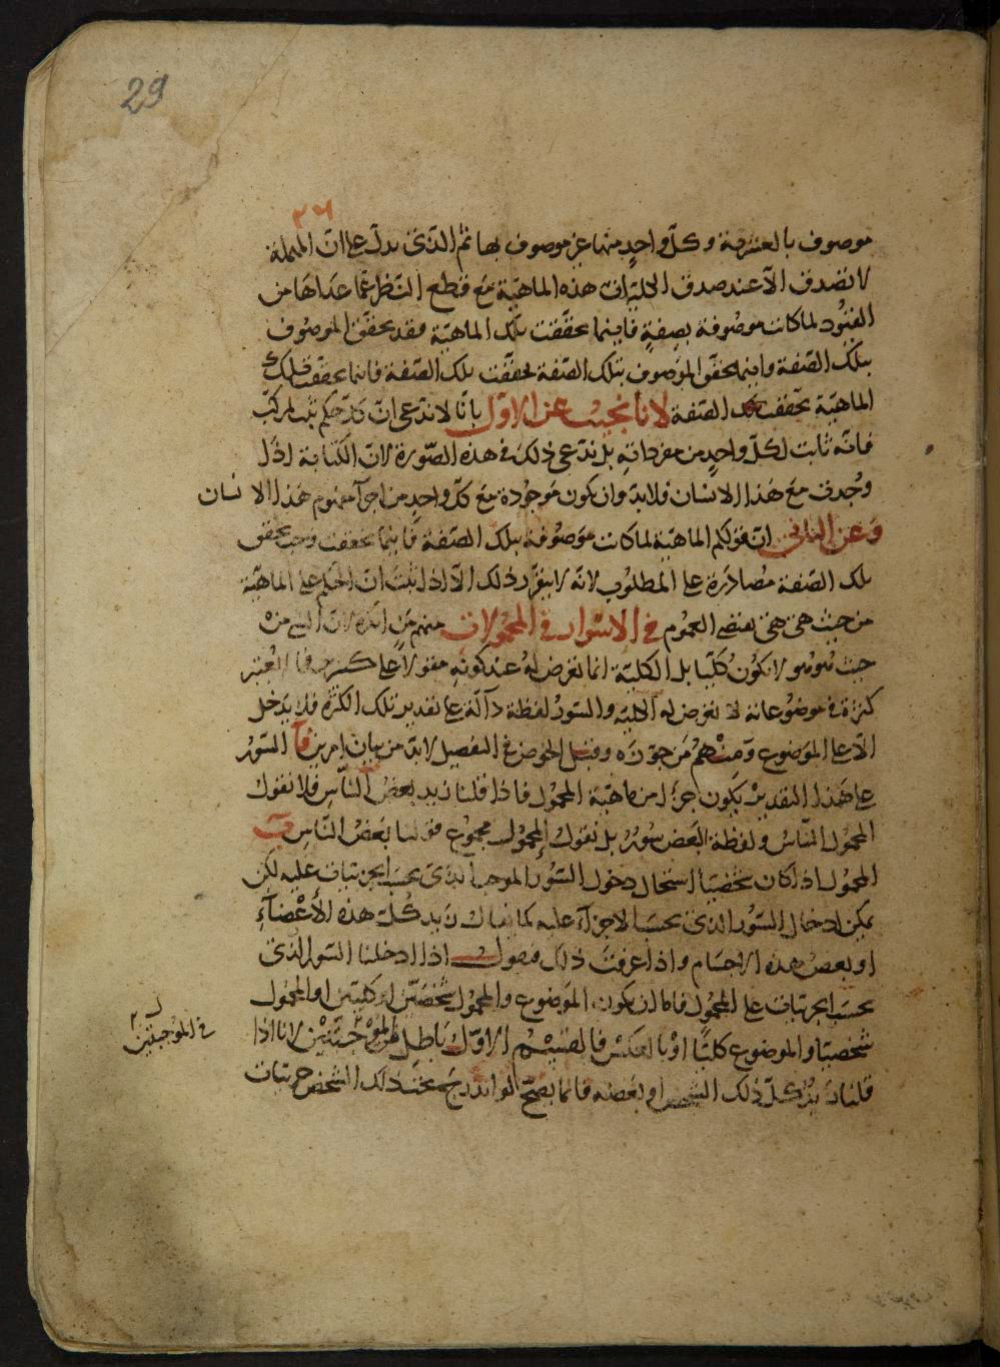 29
٢٦
موصوف بالعشرية وكل واحد منها غير موصوف بها ثم الذى يدل على ان المهملة
لا تصدق الا عند صدق الكلية ان هذه الماهية مع قطع النظر عما عداها من
القيود لما كانت موصوفة بصفة فاينما تحققت تلك الماهية فقد تحقق الموصوف
بتلك الصفة واينما تحقق الموصوف بتلك الصفة تحققت تلك الصفة فاينما تحققت تلك
الماهية تحققت تلك الصفة لانا نجيب عن الاول بانا لا ندعى ان كل حكم ثبت لمركب
فانه ثابت لكل واحد من مفرداته بل ندعى ذلك فى هذه الصورة لان الكتابة اذا
وجدت مع هذا الانسان فلابد وان تكون موجودة مع كل واحد من اجزآ مفهوم هذا الانسان
وعن الثانى ان قولكم الماهية لما كانت موصوفة بتلك الصفة فاينما تحققت وجب تحقق
تلك الصفة مصادرة على المطلوب لانه لا يتقرر ذلك الا اذا ثبت ان الحكم على الماهية
من حيث هى هى يقتضى العموم فى الاسوار فى المحمولات منهم من انكره لان الشىء من
حيث هو هو لا يكون كليا بل الكلية انما تعرض له عند كونه مقولا على كثيرين فما لم يعتبر
كثرة فى موضوعاته لا تعرض له الكلية والسور لفظة دآلة على تقدير تلك الكثرة فلا يدخل
الا على الموضوع ومنهم من جوزه وقبل الخوض فى التفصيل لابد من بيان امرين آ السور
على هذا التقدير يكون جزءا من ماهية المحمول فاذا قلنا زيد بعض الناس فلا نقول
المحمول الناس ولفظة البعض سور بل نقول المحمول مجموع قولنا بعض الناس ب
المحمول اذا كان شخصيا استحال دخول السور الموجب الذى بحسب الجزئيات عليه لكن
يمكن ادخال السور الذى بحسب الاجزآء عليه كما يقال زيد كل هذه الأعضآء
او بعض هذه الاجسام واذا عرفت ذلك فنقول اذا ادخلنا السور الذى
بحسب الجزئيات على المحمول فاما ان يكون الموضوع والمحمول شخصيين او كليين او المحمول
شخصيا والموضوع كليا او بالعكس فالقسم الاول باطل فى الموجبتين لانا اذا
قلنا زيد كل ذلك الشخص او بعضه فانما يصح لو اندرج تحت ذلك الشخص جزئيات
فى الموجبتين